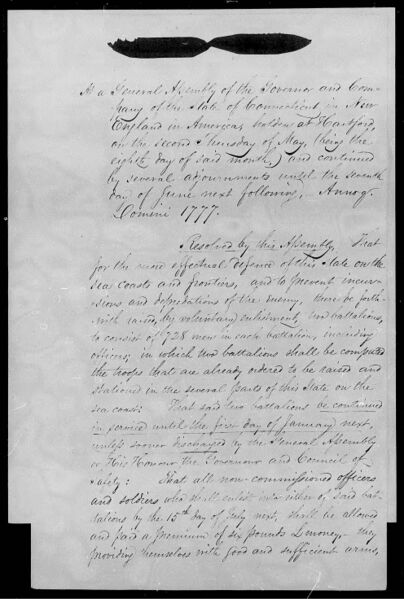 At a General Assembly of the Governor and Com-
pany of the State of Connecticut in New
England in America, holden at Hartford,
on the second Thursday of May, (being the
eighth day of said month,) and continued
by several adjournments until the seventh
day of June next following, Annoq.
Domini 1777.
Resolved by this Assembly, That
for the more effectual defence of this State on the
sea coasts and frontiers, and to prevent incur-
sions and depredations of the enemy, there be forth-
with raised, by voluntary enlistments, two battalions,
to consist of 728 men in each battalion, including
officers; in which two battalions shall be computed
the troops that are already ordered to be raised and
stationed in the several parts of this State on the
sea coast: That said two battalions be continued
in service until the first day of January next,
unless sooner discharged by the General Assembly
or His Honour the Governour and Council of
Safety: That all non-commissioned officers
and soldiers who shall enlist into either of said bat-
talions by the 15th day of July next, shall be allowed
and paid a premium of six pounds L money, they
providing themselves with good and sufficient arms,